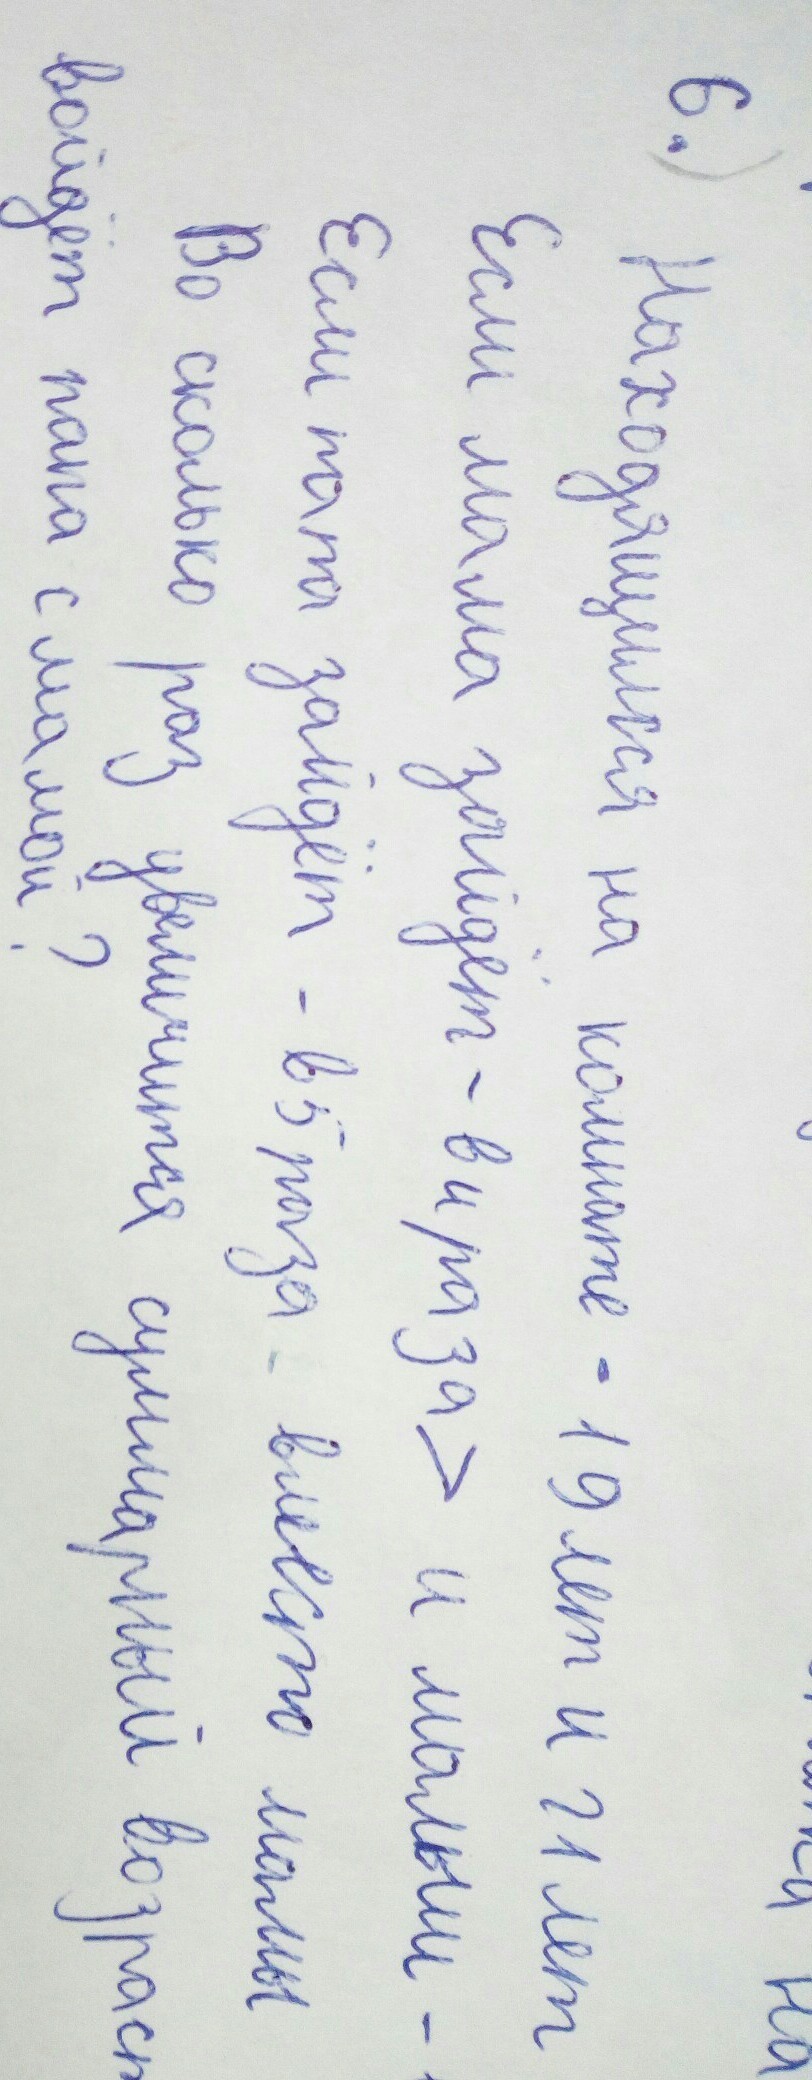 6.) Находящимся на комнате - 19 лет и 21 лет
Если мама зайдёт - в и раза > и малыш -
Если папа зайдёт - в 5 раза - вместо мамы
Во сколько раз увеличится суммарный возраст
войдёт папа с мамой?
на